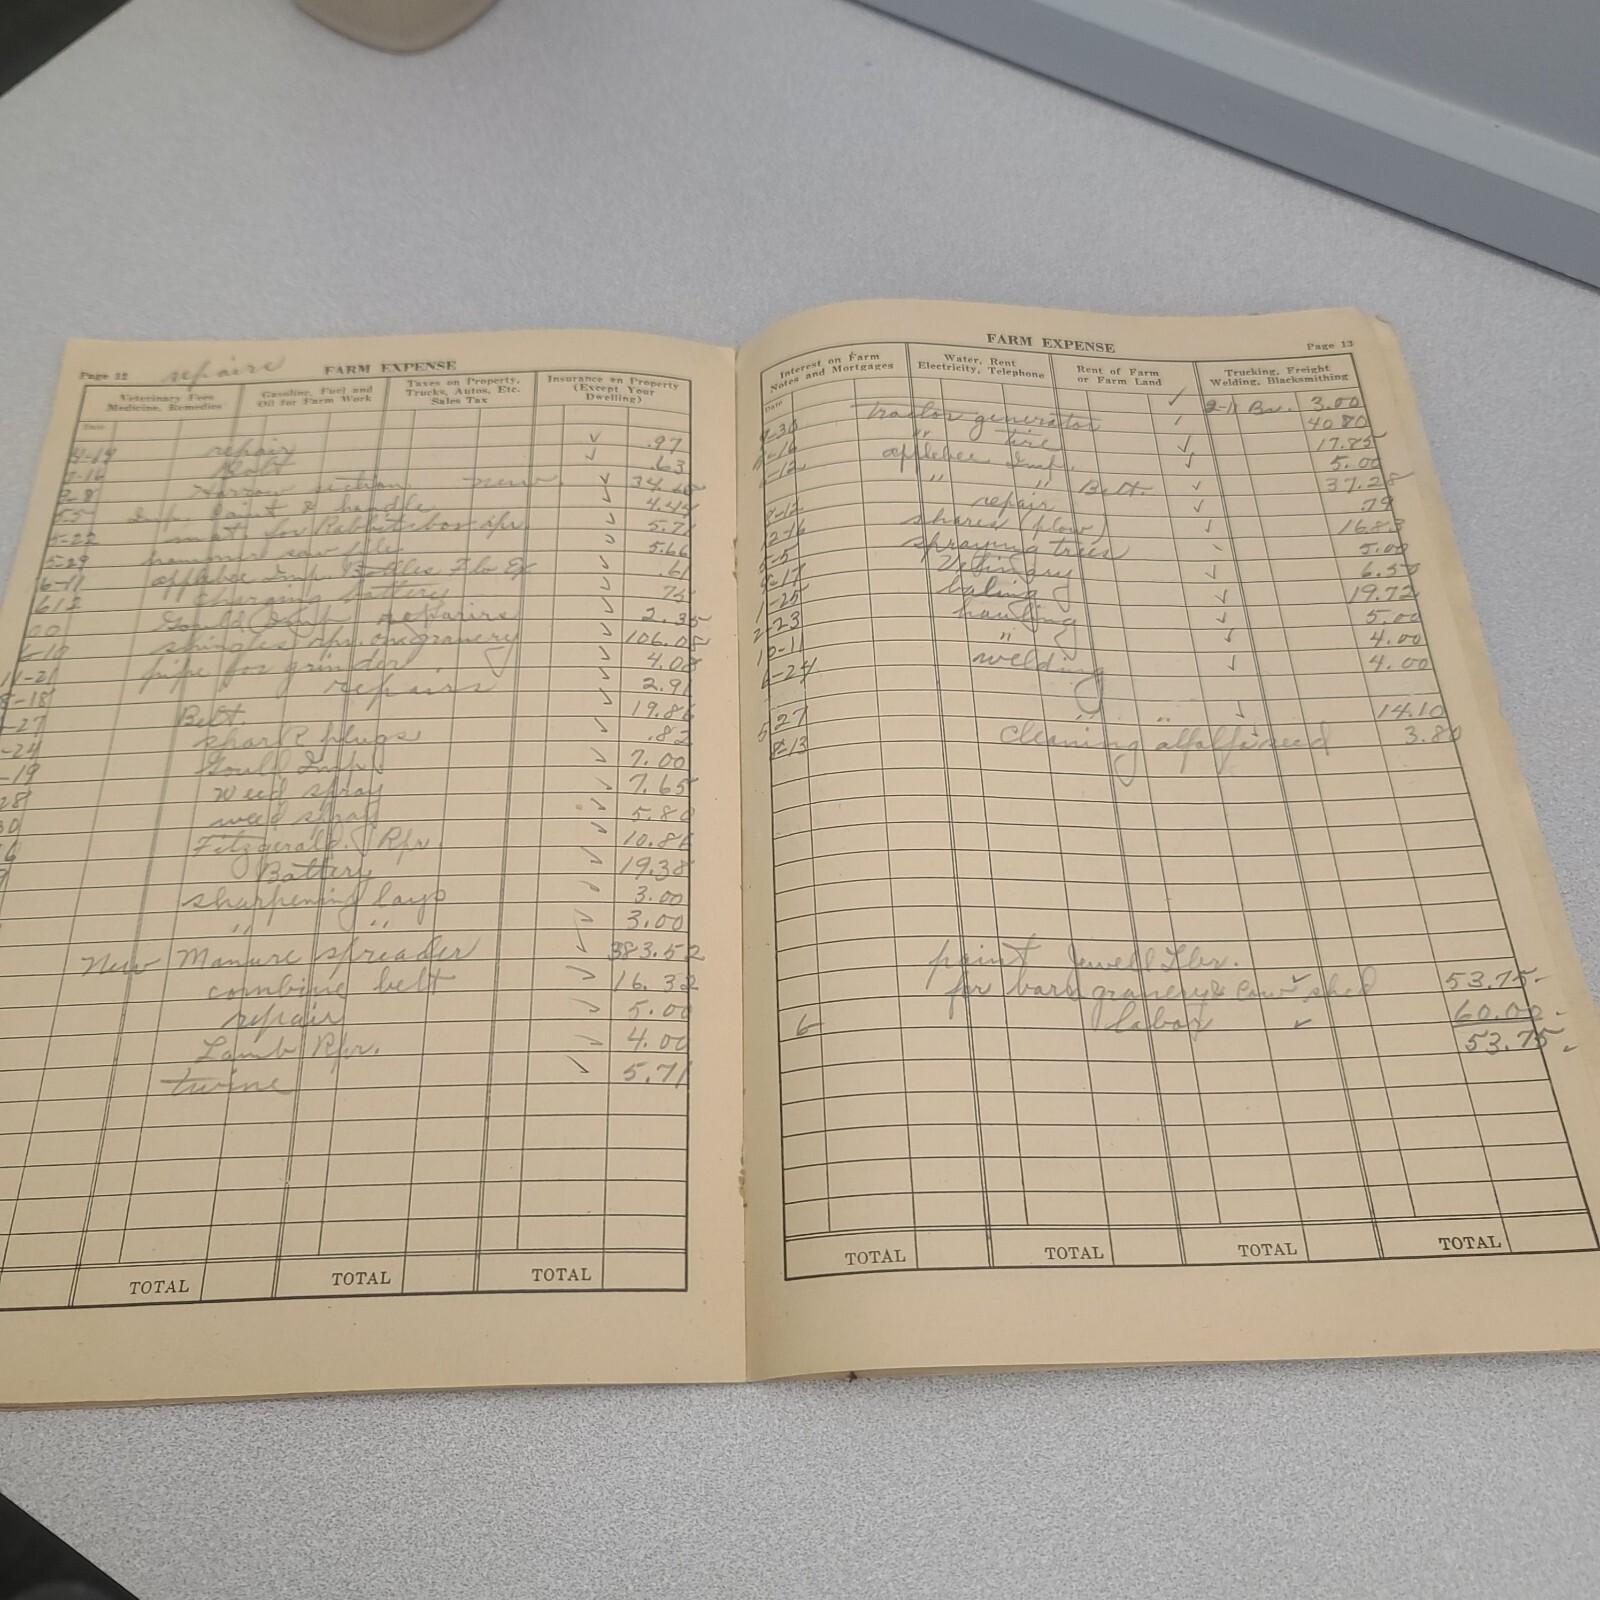 Page 12 repairs FARM EXPENSE
Veterinary Fees Medicine, Remedies
Gasoline, Fuel and Oil for Farm Work
Taxes on Property, Trucks, Autos, Etc. Sales Tax
Insurance on Property (Except Your Dwelling)
Date
repair .97
.63
Harrow section new
Imp. Paint & handle 4.44
mat. for Rabbit box 5.71
5-29 hammer saw file 5.66
6-11 applebee Imp. .61
6-12 charging battery
Gould Imp repairs 2.35
6-10 shingles rpr. on granery 106.08
11-21 pipe for grinder 4.08
8-18 repairs 2.91
-27 Belt. 19.86
-24 spark plugs .82
-19 Gould Imp. 7.00
28 weed spray 7.65
30 weed spray 5.80
6 Fitzgerald Rpr. 10.86
9 Battery 19.38
sharpening lays 3.00
" " 3.00
New Manure spreader 383.52
combine belt 16.32
repair 5.00
Lamb Rpr. 4.00
twine 5.71
TOTAL TOTAL TOTAL
FARM EXPENSE Page 13
Interest on Farm Notes and Mortgages
Water, Rent Electricity, Telephone
Rent of Farm or Farm Land
Trucking, Freight Welding, Blacksmithing
Date
2-11 3.00
tractor generator 40.80
" tire 17.85
applebee Imp. 5.00
" " Belt. 37.28
repair .79
shares (plow) 16.83
spraying trees 5.00
6.50
1-25 baling 19.72
2-23 hauling 5.00
10-11 " 4.00
6-24 welding 4.00
5-27 " " 14.10
8-13 cleaning alfalfa seed 3.80
paint Jewell Lbr.
for barn granery & cow shed 53.75
6 labor 60.00
53.75
TOTAL TOTAL TOTAL TOTAL